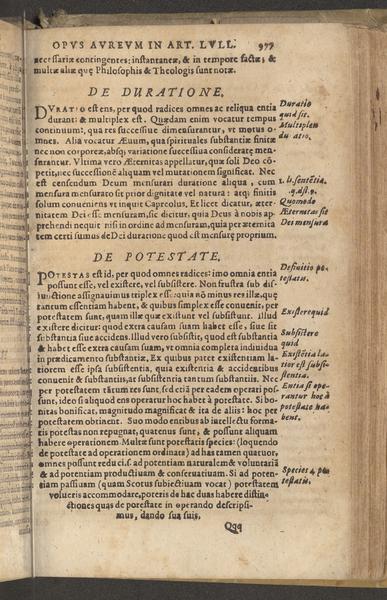 OPVS AVREVM IN ART. LVLL. 977
necessariæ contingentes: instantaneæ, & in tempore factæ; &
multæ aliæ quę Philosophis & Theologis sunt notæ.
DE DVRATIONE.
DVRATIO est ens, per quod radices omnes ac reliqua entia
durant: & multiplex est. Quędam enim vocatur tempus
continuum: qua res successiuæ dimensurantur, vt motus o-
mnes. Alia vocatur Æuum, qua spirituales substantiæ finitæ
nec non corporeæ, absq; variatione successiua considerate men-
surantur. Vltima vero Æternitas appellatur, quæ soli Deo cō-
petit, nec successionē aliquam vel mutationem significat. Nec
est censendum Deum mensurari duratione aliqua, cum
mensura mensurato sit prior dignitate vel natura: atqi finitis
solum conueniens vt inquit Capreolus. Et licet dicatur, æter-
nitatem Dei esse mensuram, sic dicitur, quia Deus à nobis ap-
prehendi nequit nisi in ordine ad mensuram, quia per æternita
tem certi sumus de Dei duratione quod est mensurę proprium.
Duratio
quid sit.
Multiplex
duratio.
1. li. sentētia.
9. dist. 9.
Quomodo
Æternetas sit
Dei mensura
DE POTESTATE.
POTESTAS est id, per quod omnes radices: imo omnia entia
possunt esse, vel existere, vel subsistere. Non frustra sub dis-
iunctione assignauimus triplex esse: quia nō minus res illæ, quę
tantum essentiam habent, & quibus simplex esse conuenit, per
potestatem sunt, quam illæ quæ existunt vel subsistunt. Illud
existere dicitur: quod extra causam suam habet esse, siue sit
substantia siue accidens. Illud vero subsistit, quod est substantia
& habet esse extra causam suam, vt omnia completa indiuidua
in prædicamento substantiæ. Ex quibus patet existentiam la-
tiorem esse ipsa subsistentia, quia existentia & accidentibus
conuenit & substantiis, at subsistentia tantum substantiis. Nec
per potestatem tantum res sunt, sed etiā per eadem operari pos-
sunt, ideo si aliquod ens operatur hoc habet à potestate. Si bo-
nitas bonificat, magnitudo magnificat & ita de aliis: hoc per
potestatem obtinent. Suo modo entibus ab intellectu forma-
tis potestas non repugnat, quatenus sunt, & possunt aliquam
habere operationem. Multæ sunt potestatis species: (loquendo
de potestate ad operationem ordinata) ad has tamen quatuor,
omnes possunt reduci. s. ad potentiam naturalem & voluntariā
& ad potentiam productiuam & conseruatiuam. Si ad poten-
tiam passiuam (quam Scotus subiectiuam vocat) potestatem
volueris accommodare, poteris de hac duas habere distin-
ctiones quas de potestate in operando descripsi-
mus, dando sua suis.
Definitio po-
testatis.
Existere quid
Subsistere
quid
Existētia la-
tior est subsi-
stentia.
Entia si ope-
rantur hoc à
potestate ha-
bent.
Species 4. po
testatis.
Qqq